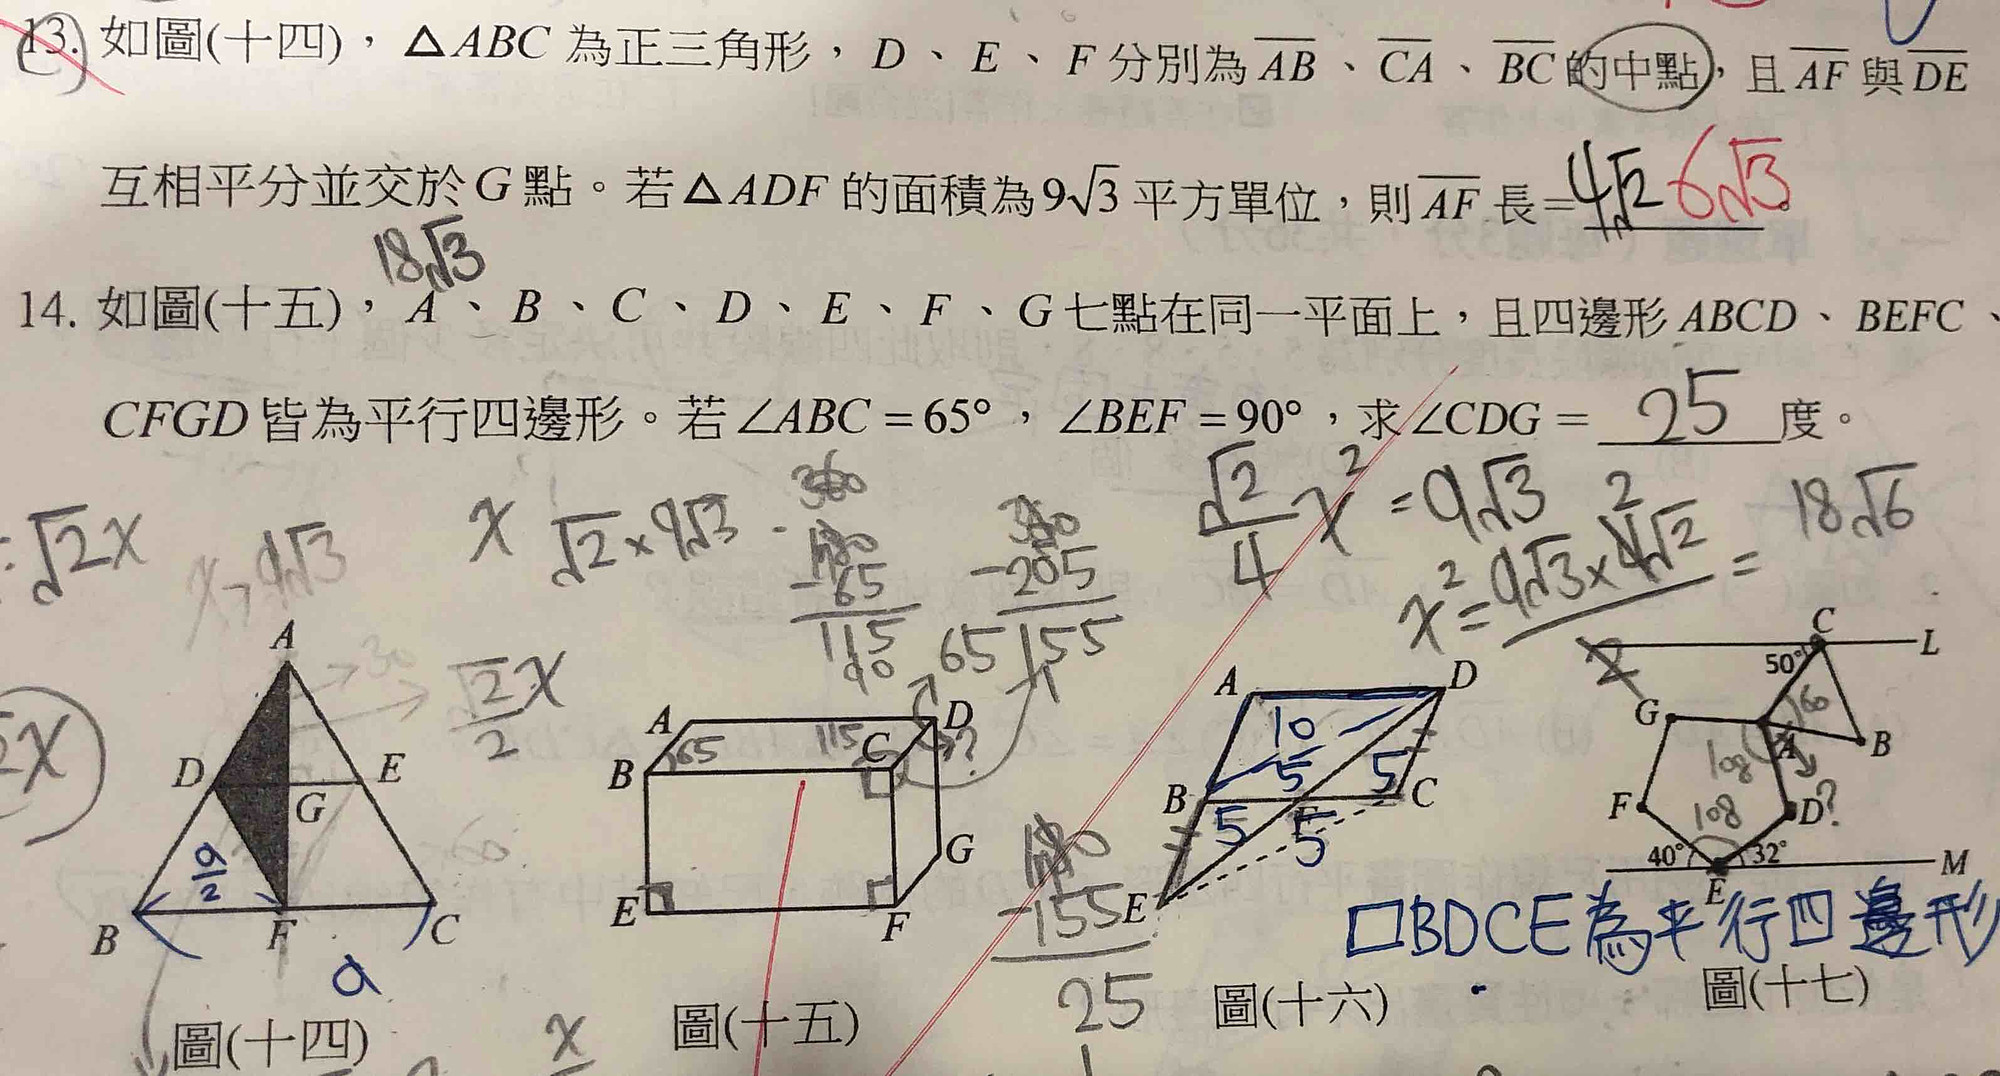 13. 如圖(十四)，△ABC 為正三角形，D、E、F 分別為 AB、CA、BC 的中點，且 AF 與 DE
互相平分並交於 G 點。若 △ADF 的面積為 9√3 平方單位，則 AF 長= 4√2 6√3。
18√3
14. 如圖(十五)，A、B、C、D、E、F、G 七點在同一平面上，且四邊形 ABCD、BEFC、
CFGD 皆為平行四邊形。若 ∠ABC = 65°，∠BEF = 90°，求 ∠CDG = 25 度。
√2x
9√3
x
√2 × 9√3
360
180
-65
115
90
-205
155
65
√2/4 x² = 9√3
x² = 9√3 × 4√2 =
18√6
2
√2/2 x
A
D E
G
a/2
B F C
a
圖(十四)
A D
65 115 C
B
?
G
E F
圖(十五)
180
-155
25
A D
10
5 5
B C
5 5
E
圖(十六)
C L
50°
60
G A B
108
F 108 D ?
40° 32°
E M
□BDCE為平行四邊形
圖(十七)
x